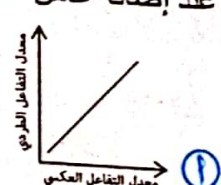 عند إضافة
معدل التفاعل الطردي
معدل التفاعل العكسي
أ